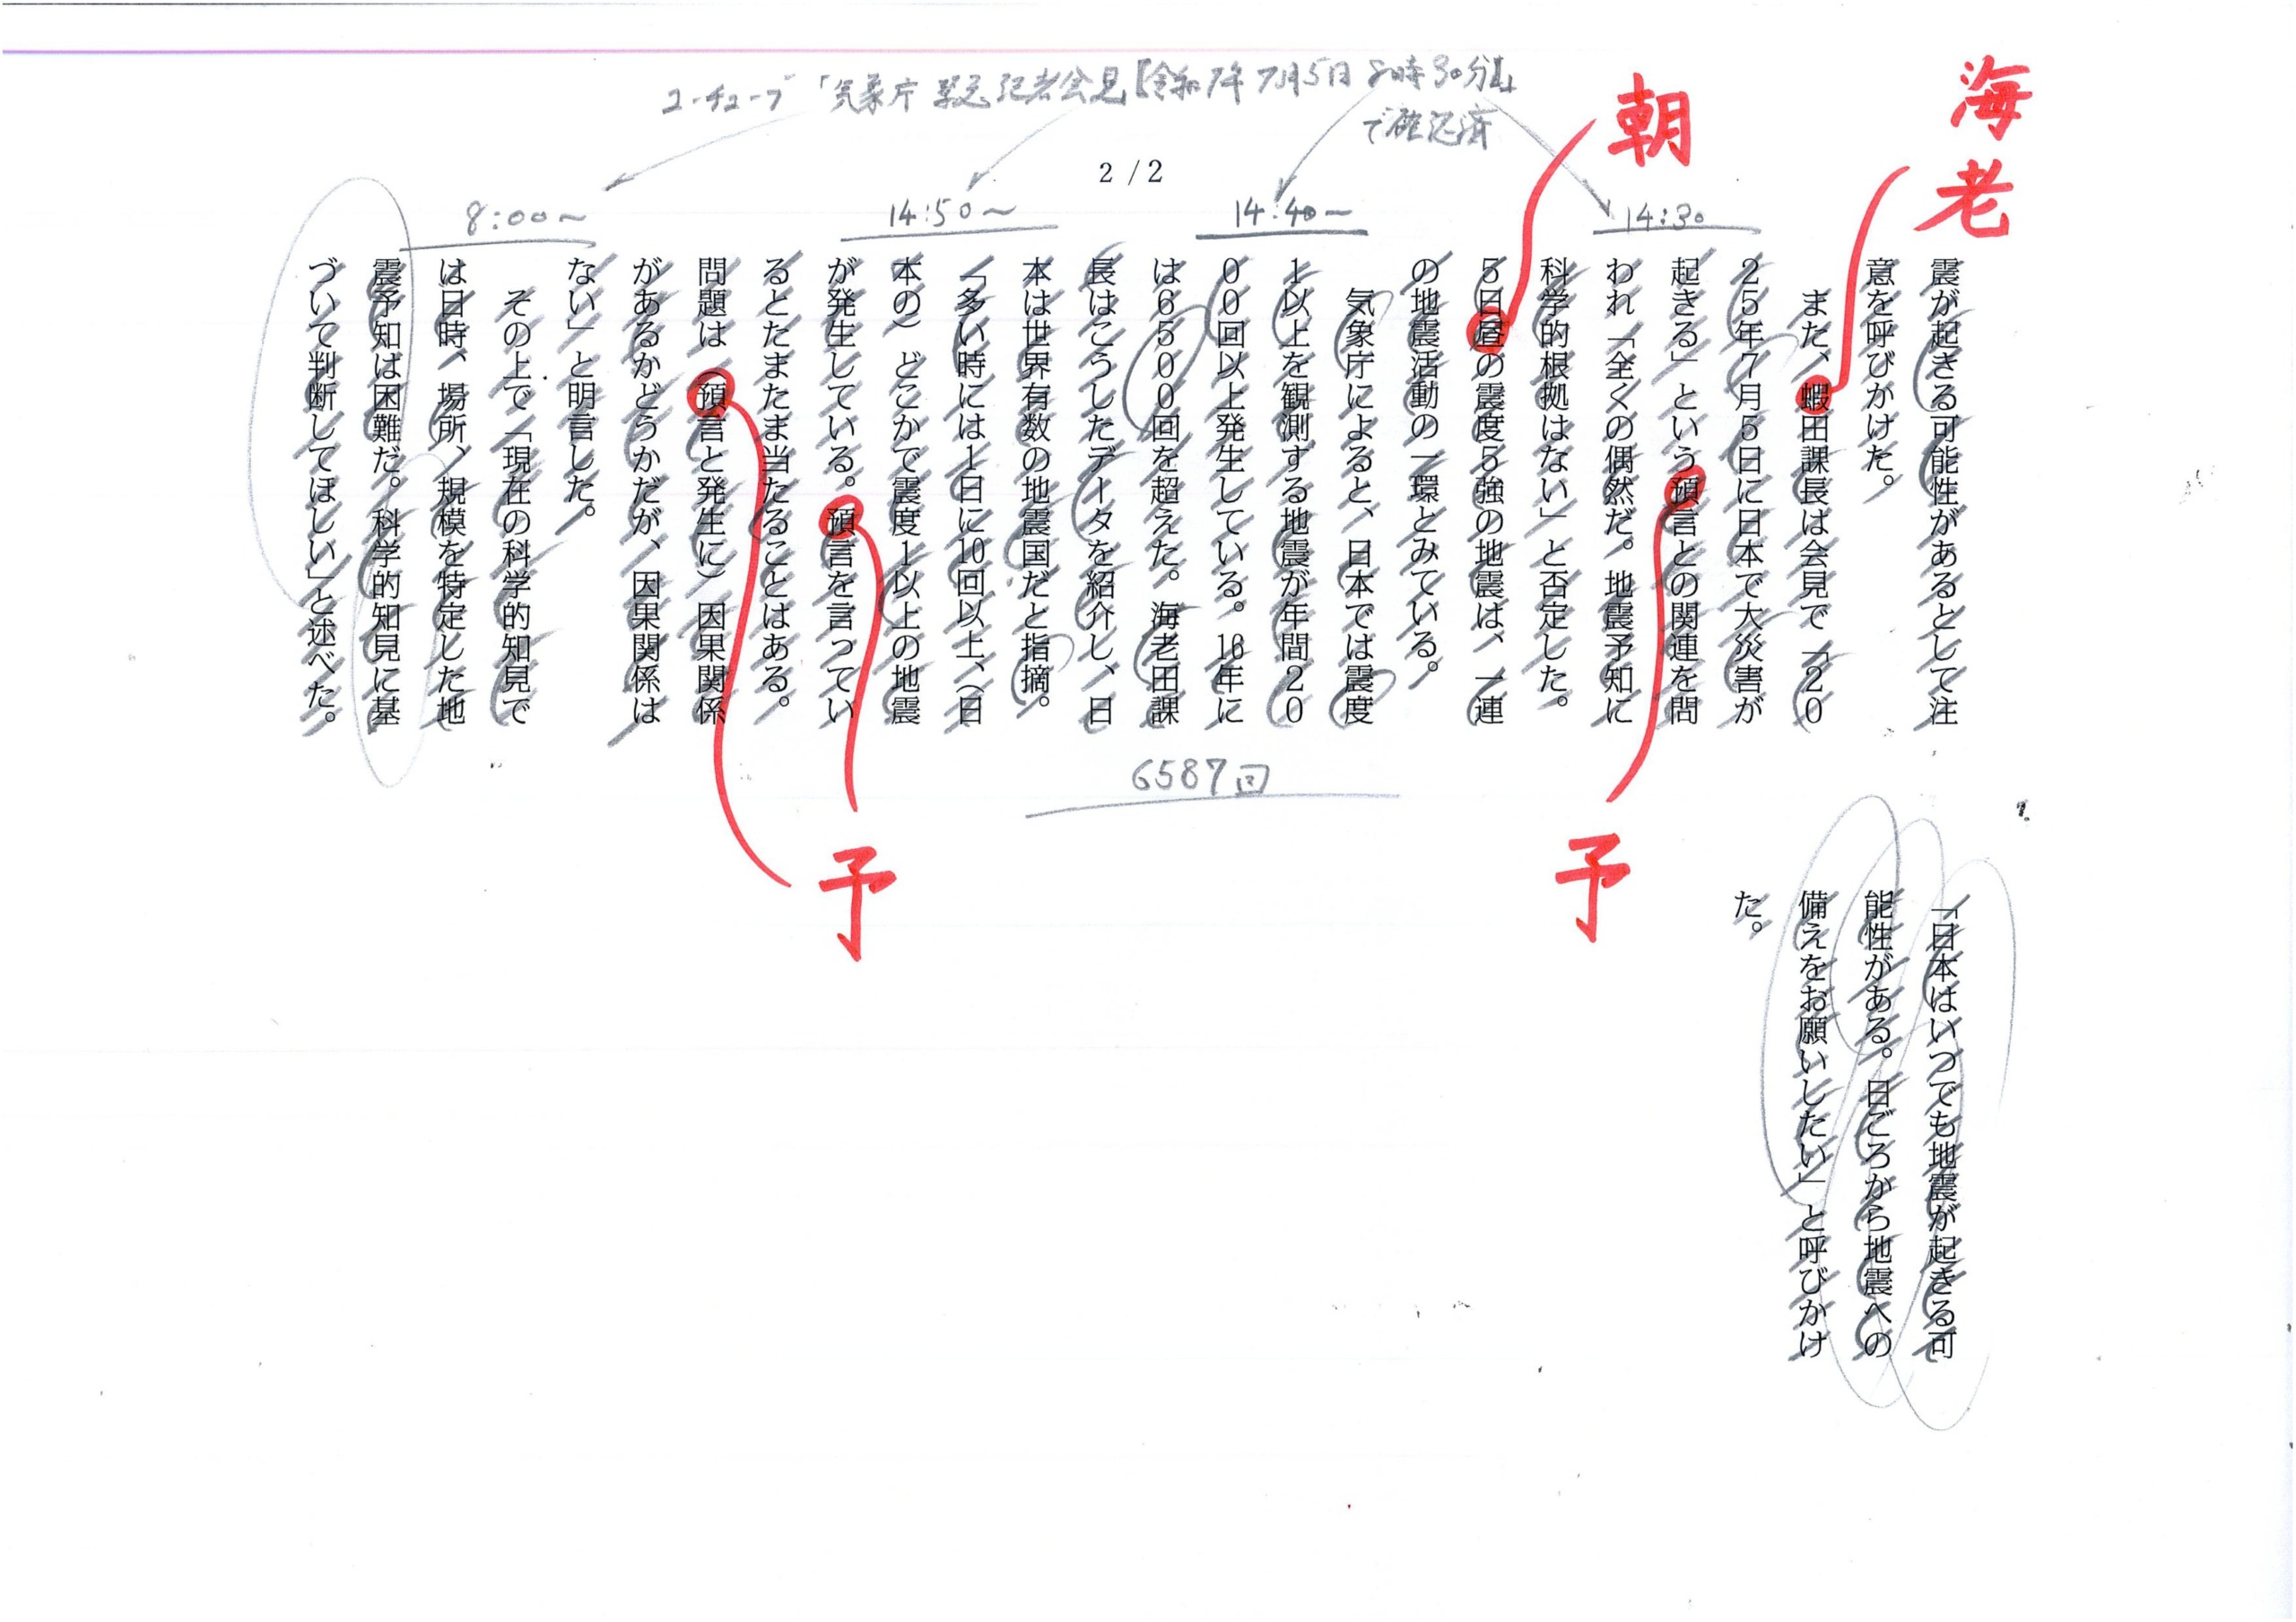 ユーチューブ「気象庁 緊急記者会見【令和7年7月5日8時30分】」
で確認済
2/2
海老
朝
14:30
14:40～
14:50～
8:00～
震が起きる可能性があるとして注
意を呼びかけた。
また、蝦田課長は会見で「20
25年7月5日に日本で大災害が
起きる」という預言との関連を問
われ「全くの偶然だ。地震予知に
科学的根拠はない」と否定した。
5日昼の震度5強の地震は、一連
の地震活動の一環とみている。
気象庁によると、日本では震度
1以上を観測する地震が年間20
00回以上発生している。16年に
は6500回を超えた。海老田課
長はこうしたデータを紹介し、日
本は世界有数の地震国だと指摘。
「多い時には1日に10回以上、（日
本の）どこかで震度1以上の地震
が発生している。預言を言ってい
るとたまたま当たることはある。
問題は（預言と発生に）因果関係
があるかどうかだが、因果関係は
ない」と明言した。
その上で「現在の科学的知見で
は日時、場所、規模を特定した地
震予知は困難だ。科学的知見に基
づいて判断してほしい」と述べた。
6587回
予
予
「日本はいつでも地震が起きる可
能性がある。日ごろから地震への
備えをお願いしたい」と呼びかけ
た。